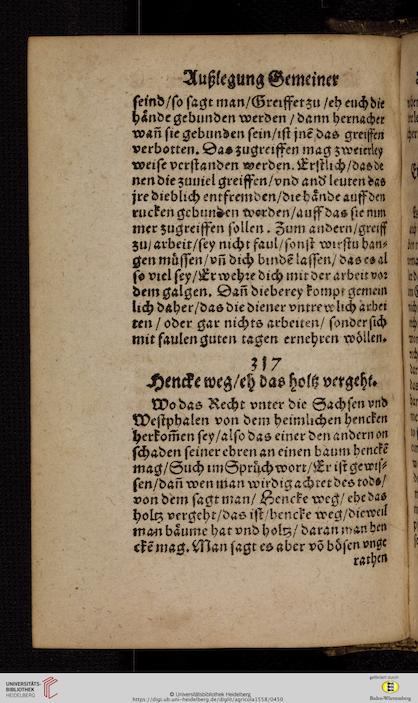 Außlegung Gemeiner
seind/so sagt man/Greiffet zu/eh euch die
hände gebunden werden/dann hernacher
wañ sie gebunden sein/ist jnē das greiffen
verbotten. Das zugreiffen mag zweierley
weise verstanden werden. Erstlich/das de
nen die zuuiel greiffen/vnd and' leuten das
jre dieblich entfremden/die hände auff den
rucken gebunden worden/auff das sie nim
mer zugreiffen sollen. Zum andern/greiff
zu/arbeit/sey nicht faul/sonst wirstu han-
gen müssen/vñ dich bindē lassen/das es al
so viel sey/Er wehre dich mit der arbeit vor
dem galgen. Dañ dieberey kompt gemein
lich daher/das die diener vntrewlich arbei
ten/oder gar nichts arbeiten/sonder sich
mit faulen guten tagen ernehren wöllen.
317
Hencke weg/eh das holtz vergeht.
Wo das Recht vnter die Sachsen vnd
Westphalen von dem heimlichen hencken
herkom̄en sey/also das einer den andern on
schaden seiner ehren an einen baum henckē
mag/Such im Sprüchwort/Er ist gewis-
sen/dañ wen man wirdig achtet des tods/
von dem sagt man/Hencke weg/ehe das
holtz vergeht/das ist/hencke weg/dieweil
man bäume hat vnd holtz/daran man hen
ckē mag. Man sagt es aber vō bösen vnge
rathen
UNIVERSITÄTS-
BIBLIOTHEK
HEIDELBERG
© Universitätsbibliothek Heidelberg
https://digi.ub.uni-heidelberg.de/diglit/agricola1558/0450
gefördert durch
Baden-Württemberg